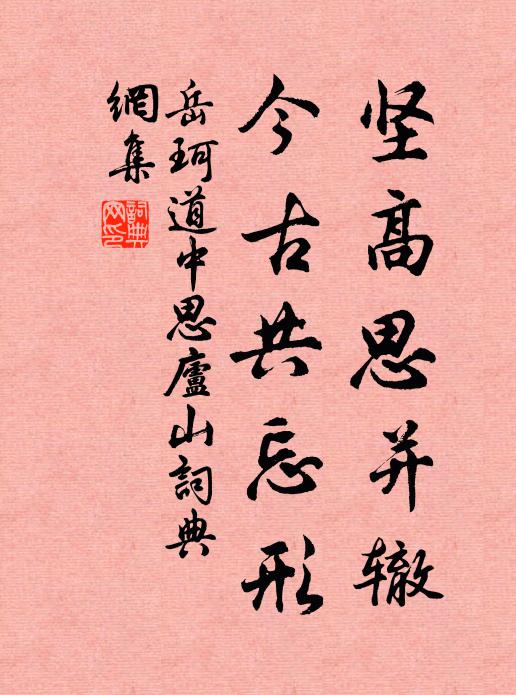 坚高思并辙
今古共忘形
岳珂道中思廬山詞典
網集
詞典網印